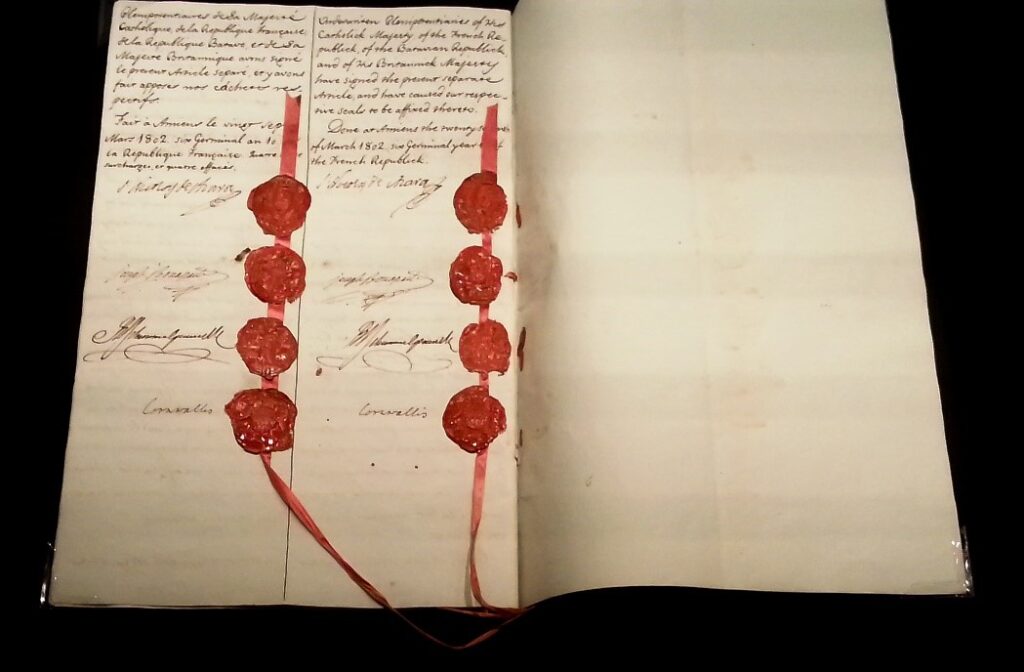 Plenipotentiaires de Sa Majesté
Catholique, de la Republique française,
de la Republique Batave, et de Sa
Majesté Britannique avons signé
le present Article separé, et y avons
fait apposer nos cachets res=
pectifs.
Fait à Amiens le vingt sep
Mars 1802. six Germinal an 10
la Republique française
surcharges, et quatre effacés.
J Nicolas de Azara
Joseph Bonaparte
RJ Schimmelpenninck
Cornwallis
Underwritten Plenipotentiaries of His
Catholick Majesty, of the French Re=
publick, of the Batavian Republick,
and of His Britannick Majesty
have signed the present separate
Article, and have caused our respec=
tive seals to be affixed thereto.
Done at Amiens the twenty
of March 1802. six Germinal year
the French Republick.
J Nicolas de Azara
Joseph Bonaparte
RJ Schimmelpenninck
Cornwallis